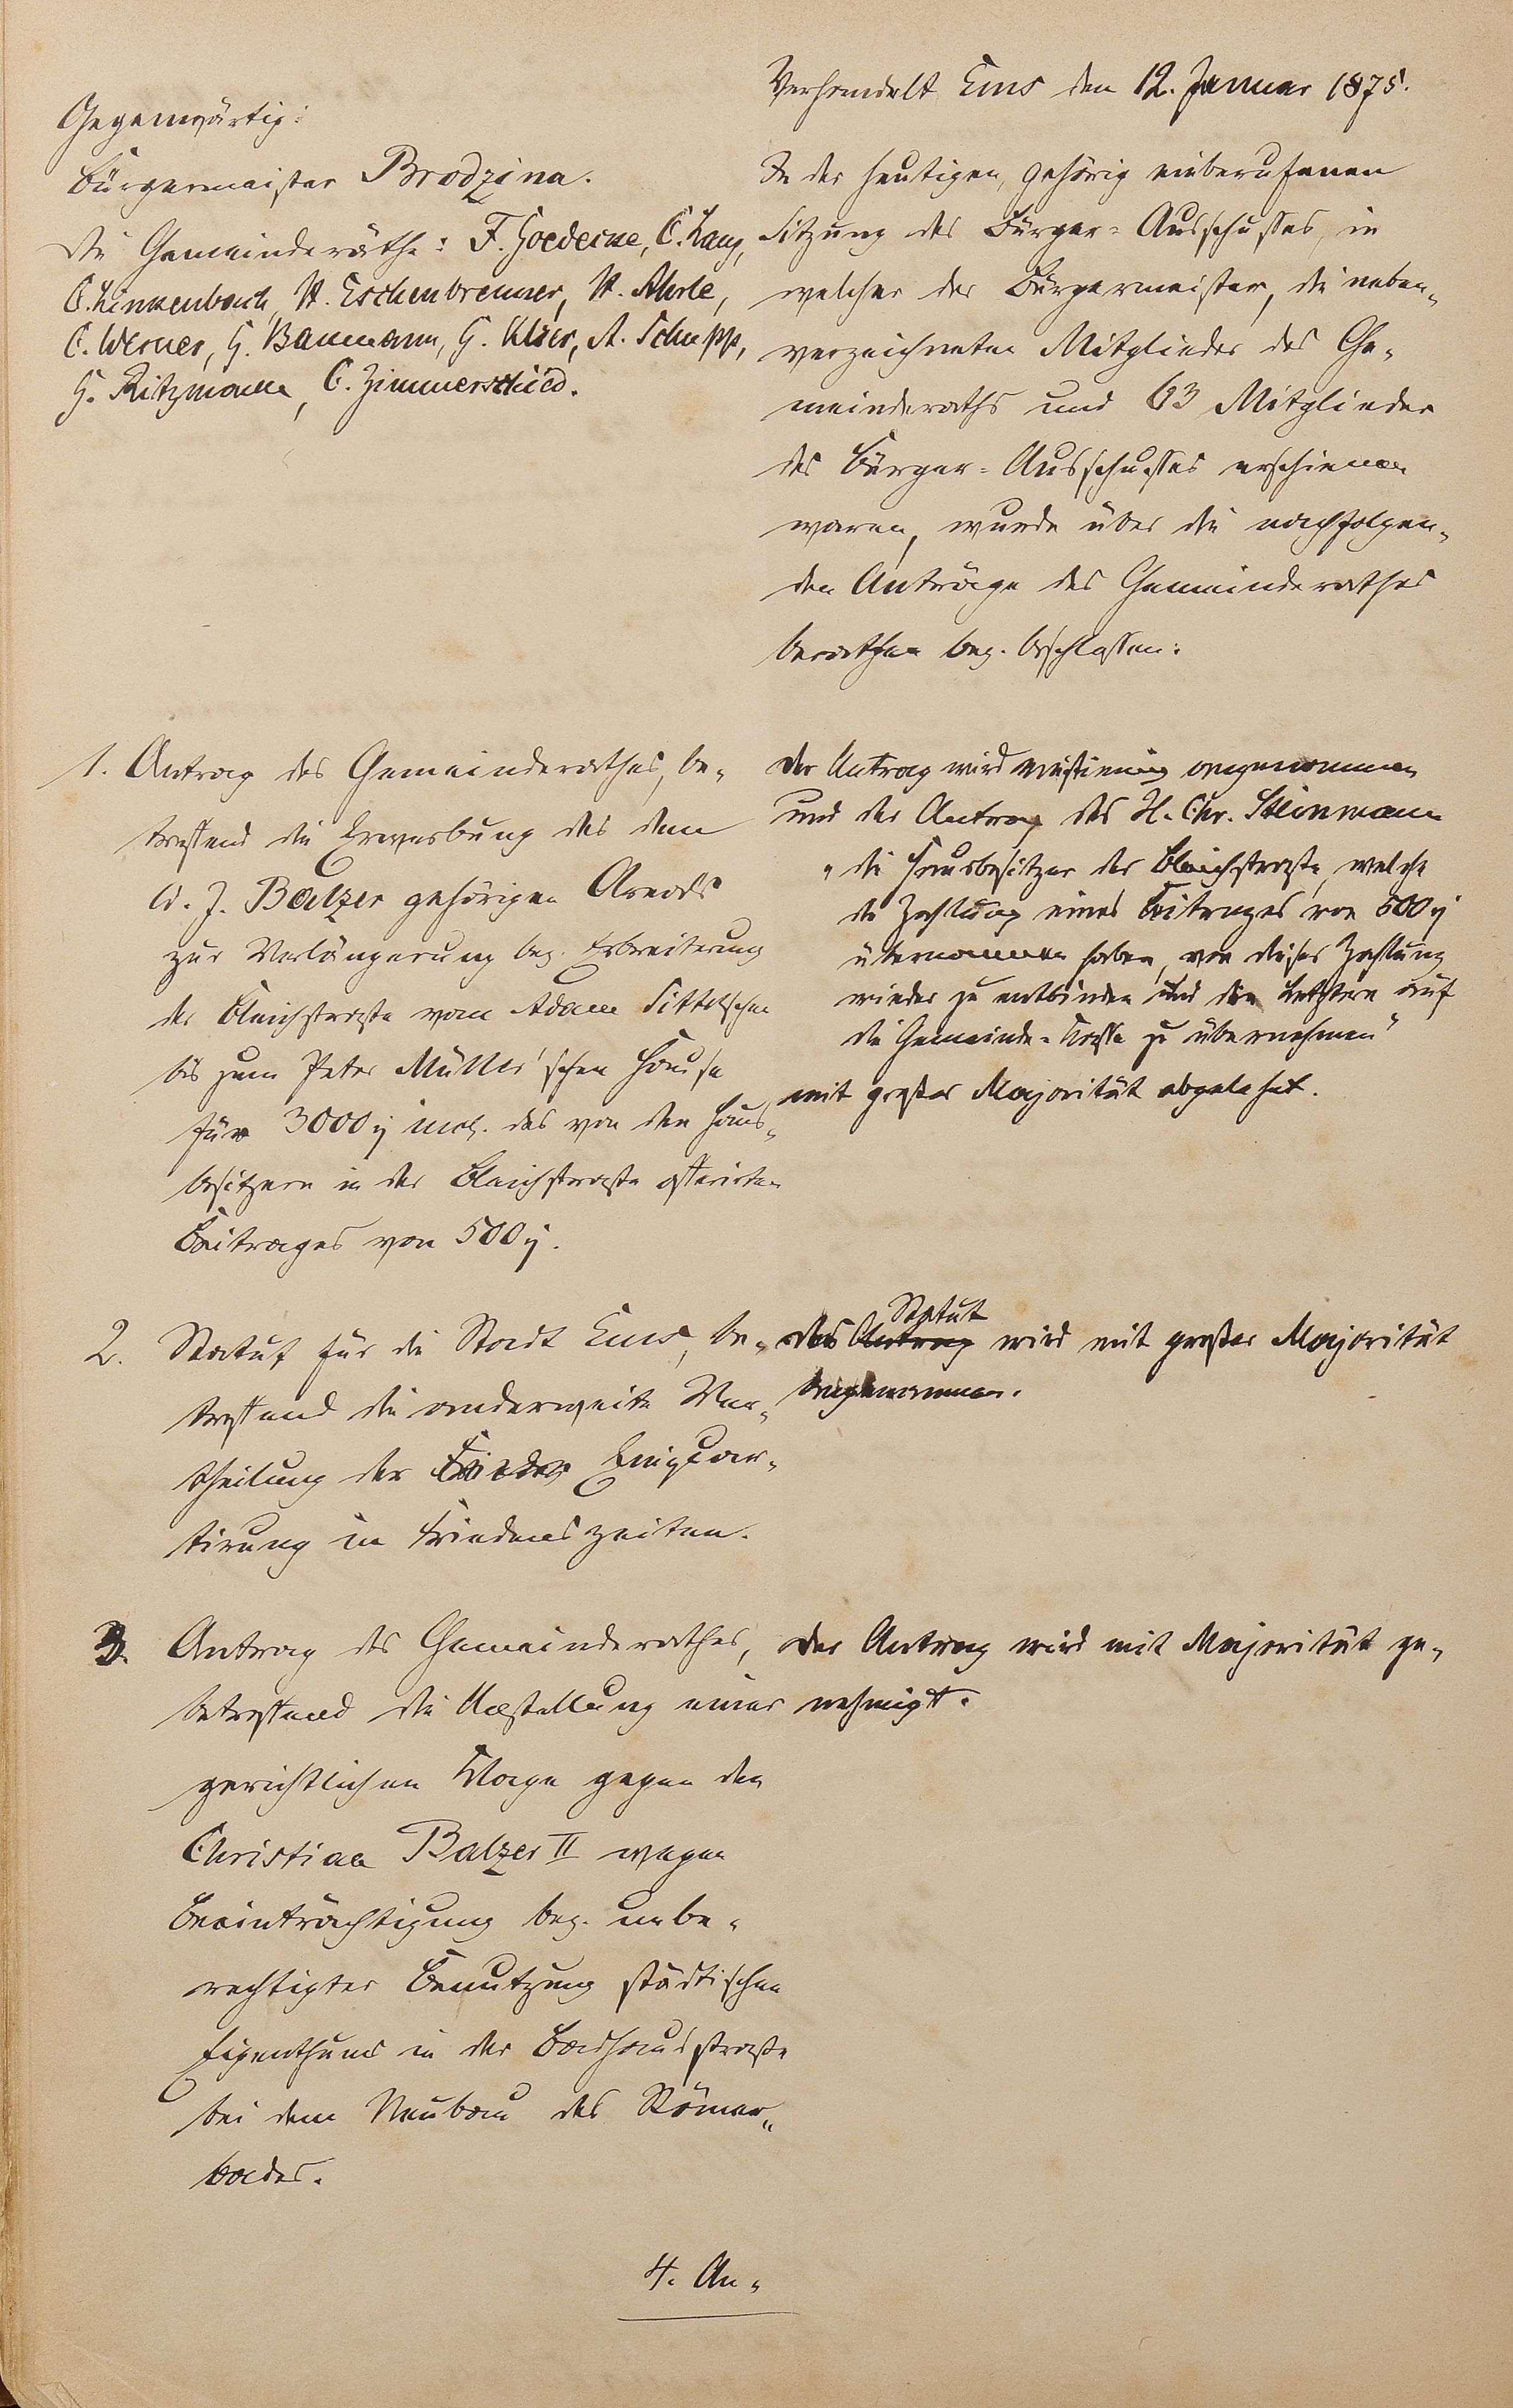 Verhandelt Ems den 12. Januar 1875.
Gegenwärtig:
Bürgermeister Brodzina.
die Gemeinderäthe: F. Goedecke, C. Lang,
C. Linkenbach, H. Eschenbrenner, H.
C. Werner, G. Baumann, G. A. Schupp,
G. Ritzmann, C. Zimmerschied.
In der heutigen, gehörig einberufenen
Sitzung des Bürger-Ausschusses, in
welcher der Bürgermeister, die neben-
verzeichneten Mitglieder des Ge-
meinderaths und 63 Mitglieder
des Bürger-Ausschusses erschienen
waren, wurde über die nachfolgen-
den Anträge des Gemeinderathes
berathen bez. beschlossen:
1. Antrag des Gemeinderathes, be-
treffend die Erwerbung des dem
J. Balzer gehörigen Areals
zur Verlängerung bez. Erbreiterung
der Bleichstraße vom Adam
bis zum Peter Müller'schen Hause
für 3000 incl. des von den Haus-
besitzern in der Bleichstraße offerirten
Beitrages von 500
Der Antrag wird einstimmig angenommen
und der Antrag des H. Chr. Steinmann
"die Hausbesitzer der Bleichstraße, welche
die Zahlung eines Beitrages von 500
übernommen haben, von dieser Zahlung
wieder zu entbinden und den Letztern auf
die Gemeinde-Kasse zu übernehmen"
mit großer Majorität abgelehnt.
2. Statut für die Stadt Ems, be-
treffend die anderweite Ver-
theilung der Einquar-
tirung in Friedenszeiten.
Statut
das Antrag wird mit großer Majorität
angenommen.
3. Antrag des Gemeinderathes,
betreffend die Anstellung einer
gerichtlichen Klage gegen den
Christian Balzer II wegen
Beeinträchtigung bez. unbe-
rechtigter Benutzung städtischen
Eigenthums in der Badhausstraße
bei dem Neubau des Römer-
bades.
der Antrag wird mit Majorität ge-
nehmigt.
4. An-